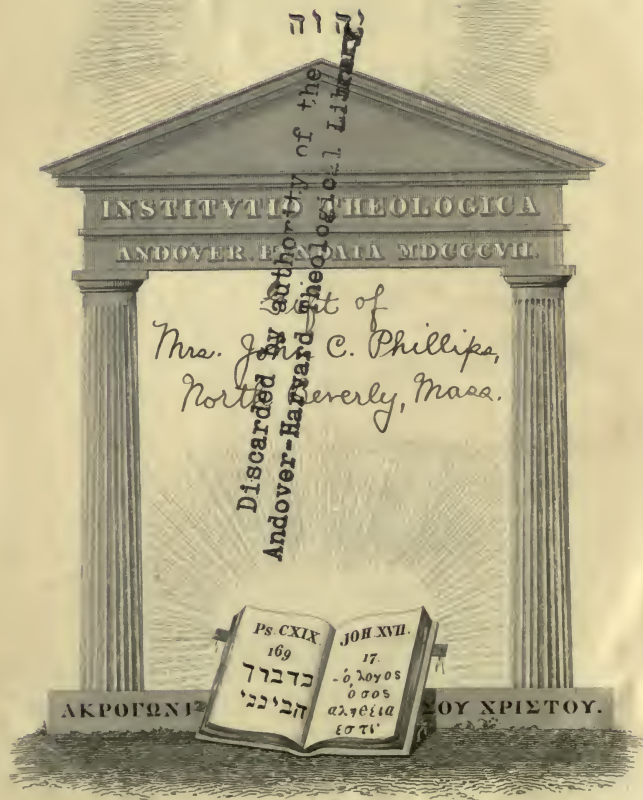 יהוה
INSTITVTIO THEOLOGICA
ANDOVER. FVNDATA MDCCCVII.
Gift of
Mrs. John C. Phillips,
North Beverly, Mass.
Discarded by authority of the
Andover-Harvard Theological Library
Ps. CXIX.
169
כדברך
הבינני
JOH. XVII.
17.
-ὁ λογος
ὁ σος
αληθεια
εστι'
ΑΚΡΟΓΩΝΙ ΣΟΥ ΧΡΙΣΤΟΥ.